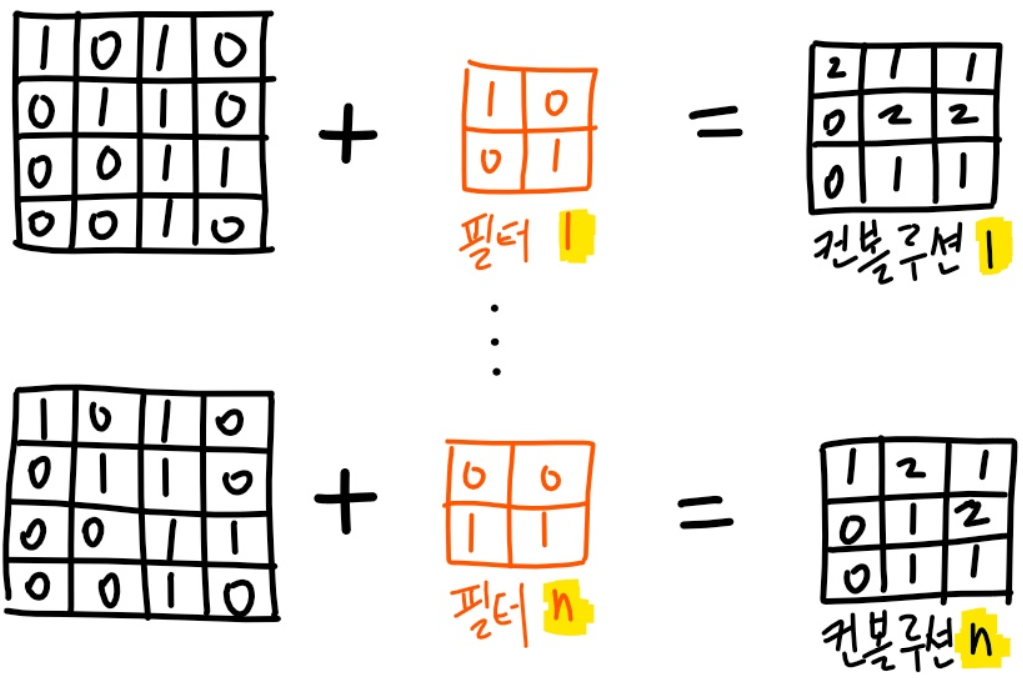 1 0 1 0
0 1 1 0
0 0 1 1
0 0 1 0
+
1 0
0 1
필터 1
=
2 1 1
0 2 2
0 1 1
컨볼루션 1
⋮
1 0 1 0
0 1 1 0
0 0 1 1
0 0 1 0
+
0 0
1 1
필터 n
=
1 2 1
0 1 2
0 1 1
컨볼루션 n